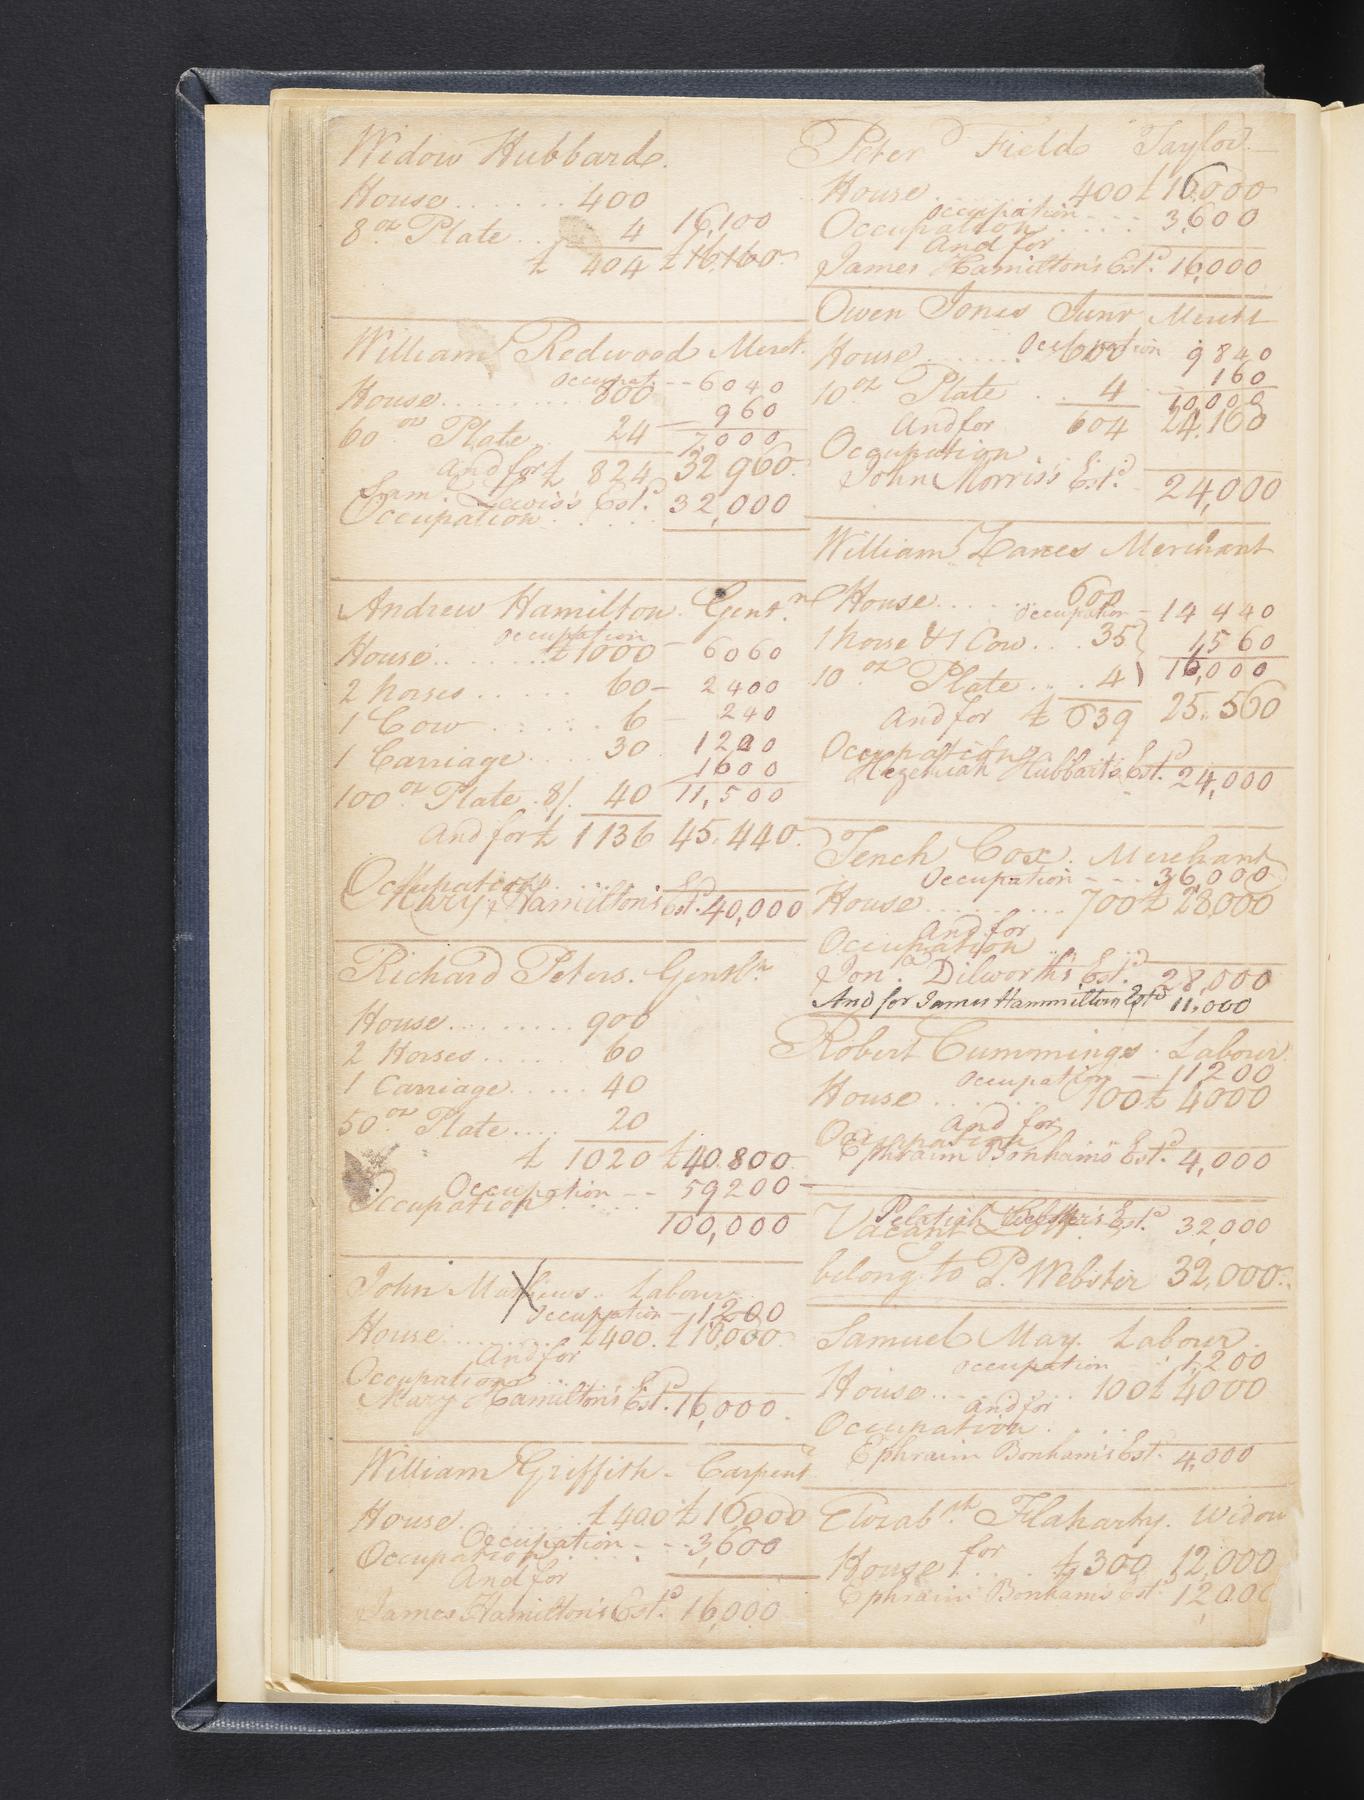 Widow Hubbard.
House....... 400
8 oz Plate... 4 16,100
£ 404 £16.160
William Redwood Mercht.
Occupat. -- 6040
House......... 800
960
60 oz Plate.. 24 7,000
And for £ 824 32960.
Sam.l Lewis's Est.d
Occupation..... 32,000
Andrew Hamilton. Gent.n
Occupation
House........£1000 - 6060
2 horses...... 60 - 2400
1 Cow...... 6 - 240
1 Carriage.... 30 1200
1600
100 oz Plate. 8/. 40 11,500
And for £ 1136 45.440.
Occupation.....
Mary Hamilton's Est.d 40,000
Richard Peters. Gentln
House......... 900
2 Horses..... 60
1 Carriage.... 40
50 oz Plate.... 20
£ 1020 £40.800
Occupation -- 59200
Occupation.....
100,000
John Mathews.. Labour..
Occupation - 1200
House......... £400. £16,000
And for
Occupation....
Mary Hamilton's Est.d 16,000.
William Griffith - Carpent.r
House........ £400 £16000
Occupation - - - 3,600
Occupation.....
And for
James Hamilton's Est.d 16,000
Peter Field Taylor.
House........ 400 £16000
Occupation
Occupation.... 3,600
And for
James Hamilton's Est.d 16,000
Owen Jones Junr. Mercht
House....... 600 Occupation 9840
160
10 oz Plate... 4 10,000
And for 604 24,160
Occupation..
John Morris's Est.d 24,000
William Zanes Merchant
House..... 600
Occupation - 14440
1 horse & 1 Cow... 35 1,560
10 oz Plate.... 4 16,000
And for £ 639 25.560
Occupation
Hezekiah Hubbart's Est.d 24,000
Tench Cox. Merchant
Occupation - - - 36,000
House.......... 700 £ 28,000
And for
Occupation
Jon.a Dilworth's Est.d 28,000
And for James Hammilton Estd 11,000
Robert Cummings. Labour.
Occupation - 11,200
House....... 100 £ 4000
And for
Occupation
Ephraim Bonham's Est.d 4,000
Pelatiah Webster's Est.d 32,000
Vacant Lott
belong.g to P. Webster 32,000..
Samuel May. Labour.
Occupation 1,200
House......... 100 £ 4000
And for
Occupation.....
Ephraim Bonham's Est. 4,000
Elizab.th Flaharty. Widow
House for.... £300 12,000
Ephraim Bonham's Est.d 12,000